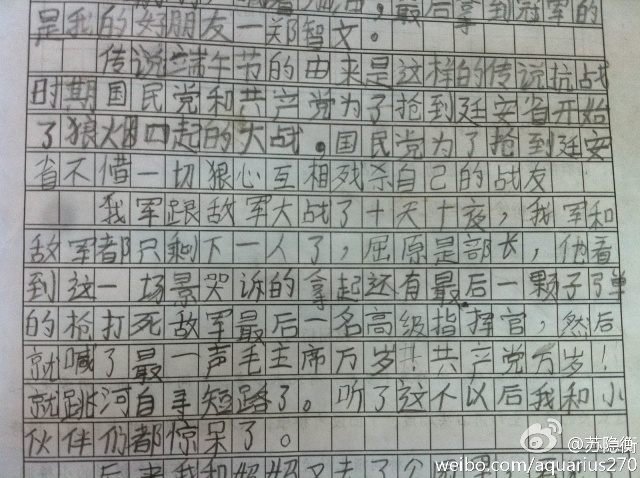 最后拿到冠军的
是我的好朋友一郑智文。
传说端午节的由来是这样的传说抗战
时期国民党和共产党为了抢到廷安省开始
了狼烟四起的大战。国民党为了抢到廷安
省不借一切狠心互相残杀自己的战友
我军跟敌军大战了十天十夜，我军和
敌军都只剩下一人了，屈原是部长，他看
到这一场景哭诉的拿起还有最后一颗子弹
的枪打死敌军最后一名高级指挥官，然后
就喊了最一声毛主席万岁！共产党万岁！
就跳河自手短路了。听了这个以后我和小
伙伴们都惊呆了。
后来我和妈妈又去了个
@苏隐衡
weibo.com/aquarius270